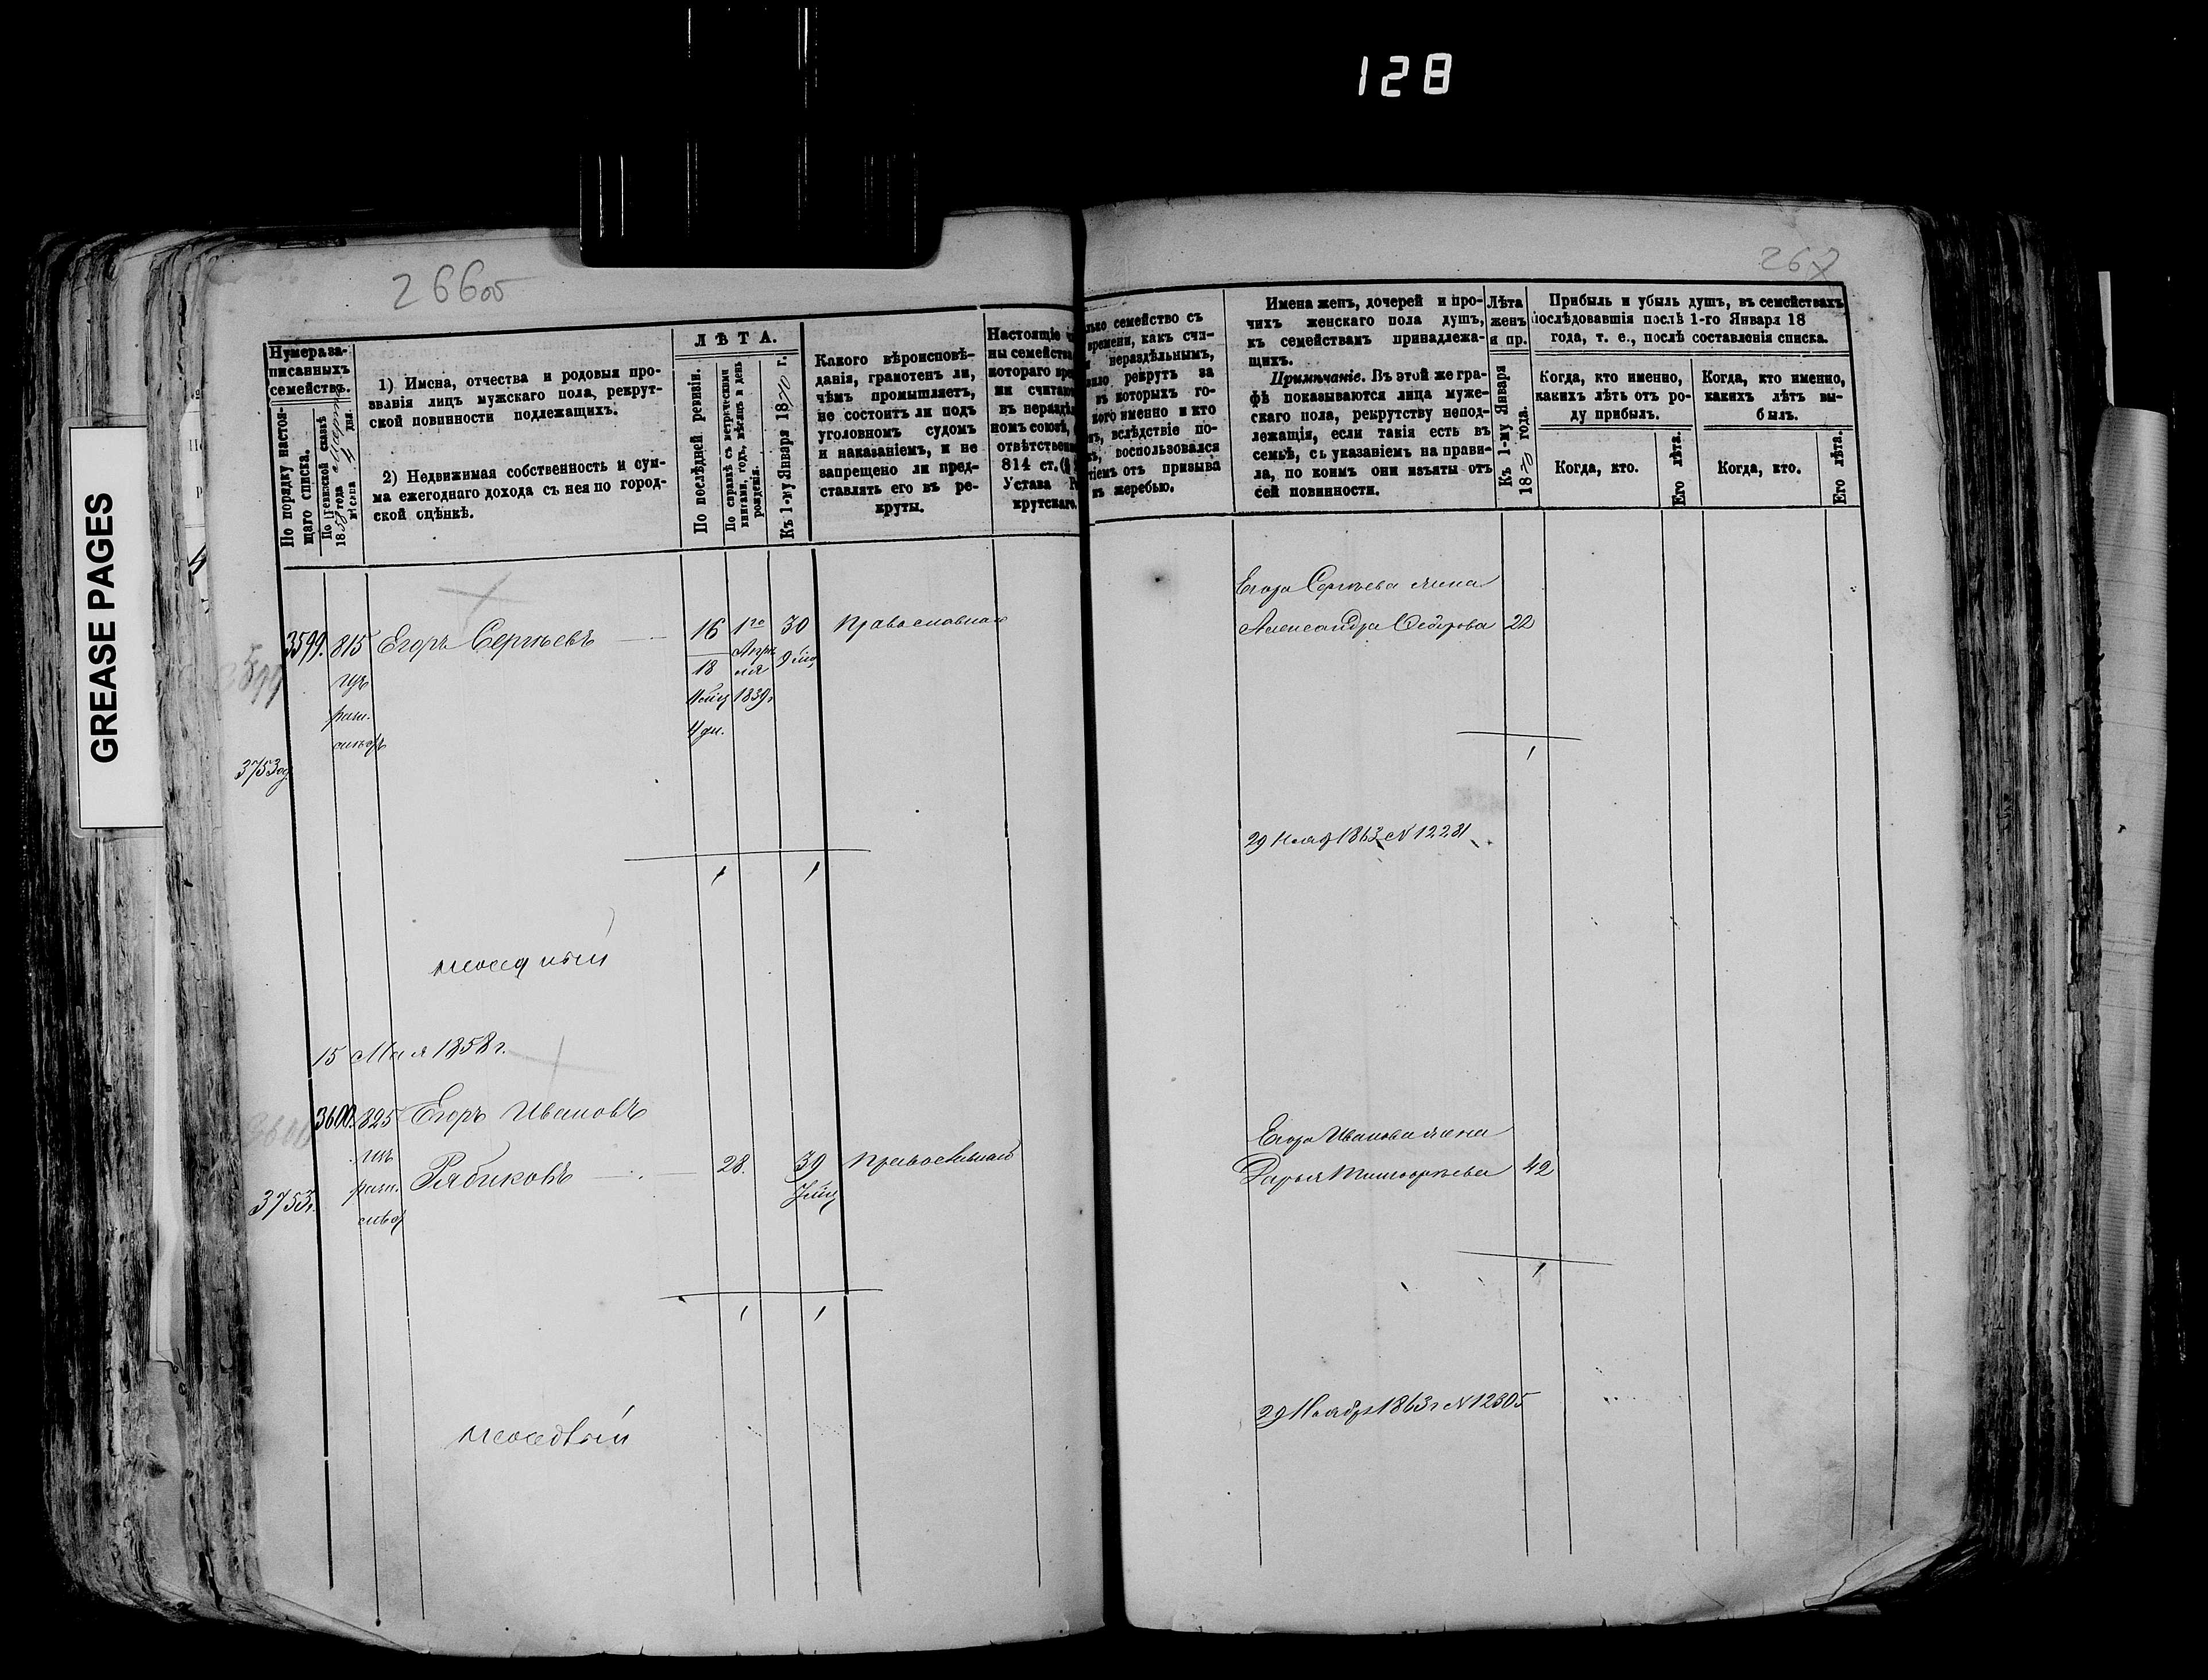 128
GREASE PAGES
266об
267
Нумера записанныхъ семействъ.
По порядку настоящаго списка.
По Ревизской сказкѣ 1858 года Марта мѣсяца дня.
1) Имена, отчества и родовыя про-
званія лицъ мужскаго пола, рекрут-
ской повинности подлежащихъ.
2) Недвижимая собственность и сум-
ма ежегоднаго дохода съ нея по город-
ской оцѣнкѣ.
ЛѢТА.
По послѣдней ревизіи.
По справкѣ съ метрическими
книгами, годъ, мѣсяцъ и день
рожденія.
Къ 1-му Января 1870 г.
Какого вѣроисповѣ-
данія, грамотенъ ли,
чѣмъ промышляетъ,
не состоитъ ли подъ
уголовномъ судомъ
и наказаніемъ, и не
запрещено ли пред-
ставлять его въ ре-
круты.
Настоящіе
ны семейства
котораго
ни считаю
въ нераздѣ
номъ союзѣ,
отвѣтствен
814 ст.
Устава
крутскаго.
семейство съ
времени, какъ счи-
нераздѣльнымъ,
рекрутъ за
въ которыхъ го-
кого именно и кто
вслѣдствіе по-
воспользовался
отъ призыва
жеребью.
Имена женъ, дочерей и про-
чихъ женскаго пола душъ,
къ семействамъ принадлежа-
щихъ.
Примѣчаніе. Въ этой же гра-
фѣ показываются лица муже-
скаго пола, рекрутству непод-
лежащія, если такія есть въ
семьѣ, съ указаніемъ на прави-
ла, по коимъ они изъяты отъ
сей повинности.
Лѣта
женъ
и пр.
Къ 1-му Января
1870 года.
Прибыль и убыль душъ, въ семействахъ
послѣдовавшія послѣ 1-го Января 18
года, т. е., послѣ составленія списка.
Когда, кто именно,
какихъ лѣтъ отъ ро-
ду прибылъ.
Когда, кто именно,
какихъ лѣтъ вы-
былъ.
Когда, кто.
Его лѣта.
Когда, кто.
Его лѣта.
Егора Сергѣева жена
3599. 815 Егоръ Сергѣевъ 16 1го 30 Православнаго
Александра Ѳедорова 22
18 Апрѣ
ля
1839г
4 дн.
3753
1
29 Нояб 1863 N 12281
1 1
15 Мая 1858 г.
3600. 825 Егоръ Ивановъ
Рябиковъ 28. 39 православнаго
3753
Егора Иванова жена
Дарья Тимофѣева 42
1
1 1
29 Ноября 1863 г N 12305